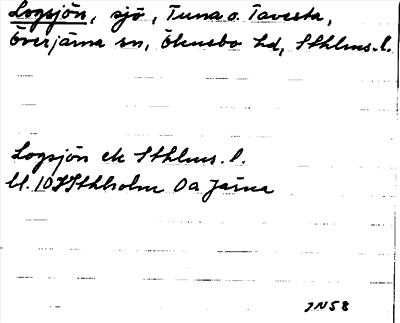 Logsjön, sjö, Tuna o. Tavesta,
Överjärna sn, Öknebo hd, Sthlms. l.
Logsjön ek Sthlms. l.
bl. 10 I Sthholm Öa Järna
JN58